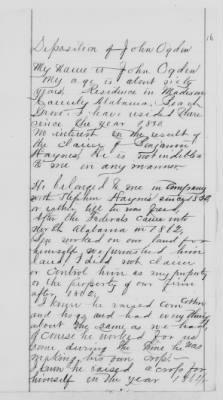 16
Deposition of John Ogden
My name is John Ogden
My age is about sixty
years Residence in Madison
County Alabama,
I have resided there
since the year 1820
No interest in the result of
the claim of Benjamin
Haynes. He is not indebted
to me in any manner
He belonged to me in company
with Stephen Haynes since 1852
or rather till he was freed
After the Federals came into
North Alabama in 1862,
he worked on our land for
himself we furnished him
land, I did not claim
or control him as my property
or the property of our firm
after 1862,
I know he raised corn cotton
and hogs and had everything
about the same as we had,
Of course he worked for us
some during the time he was
making his own crop
I know he raised a crop for
himself in the year 1864